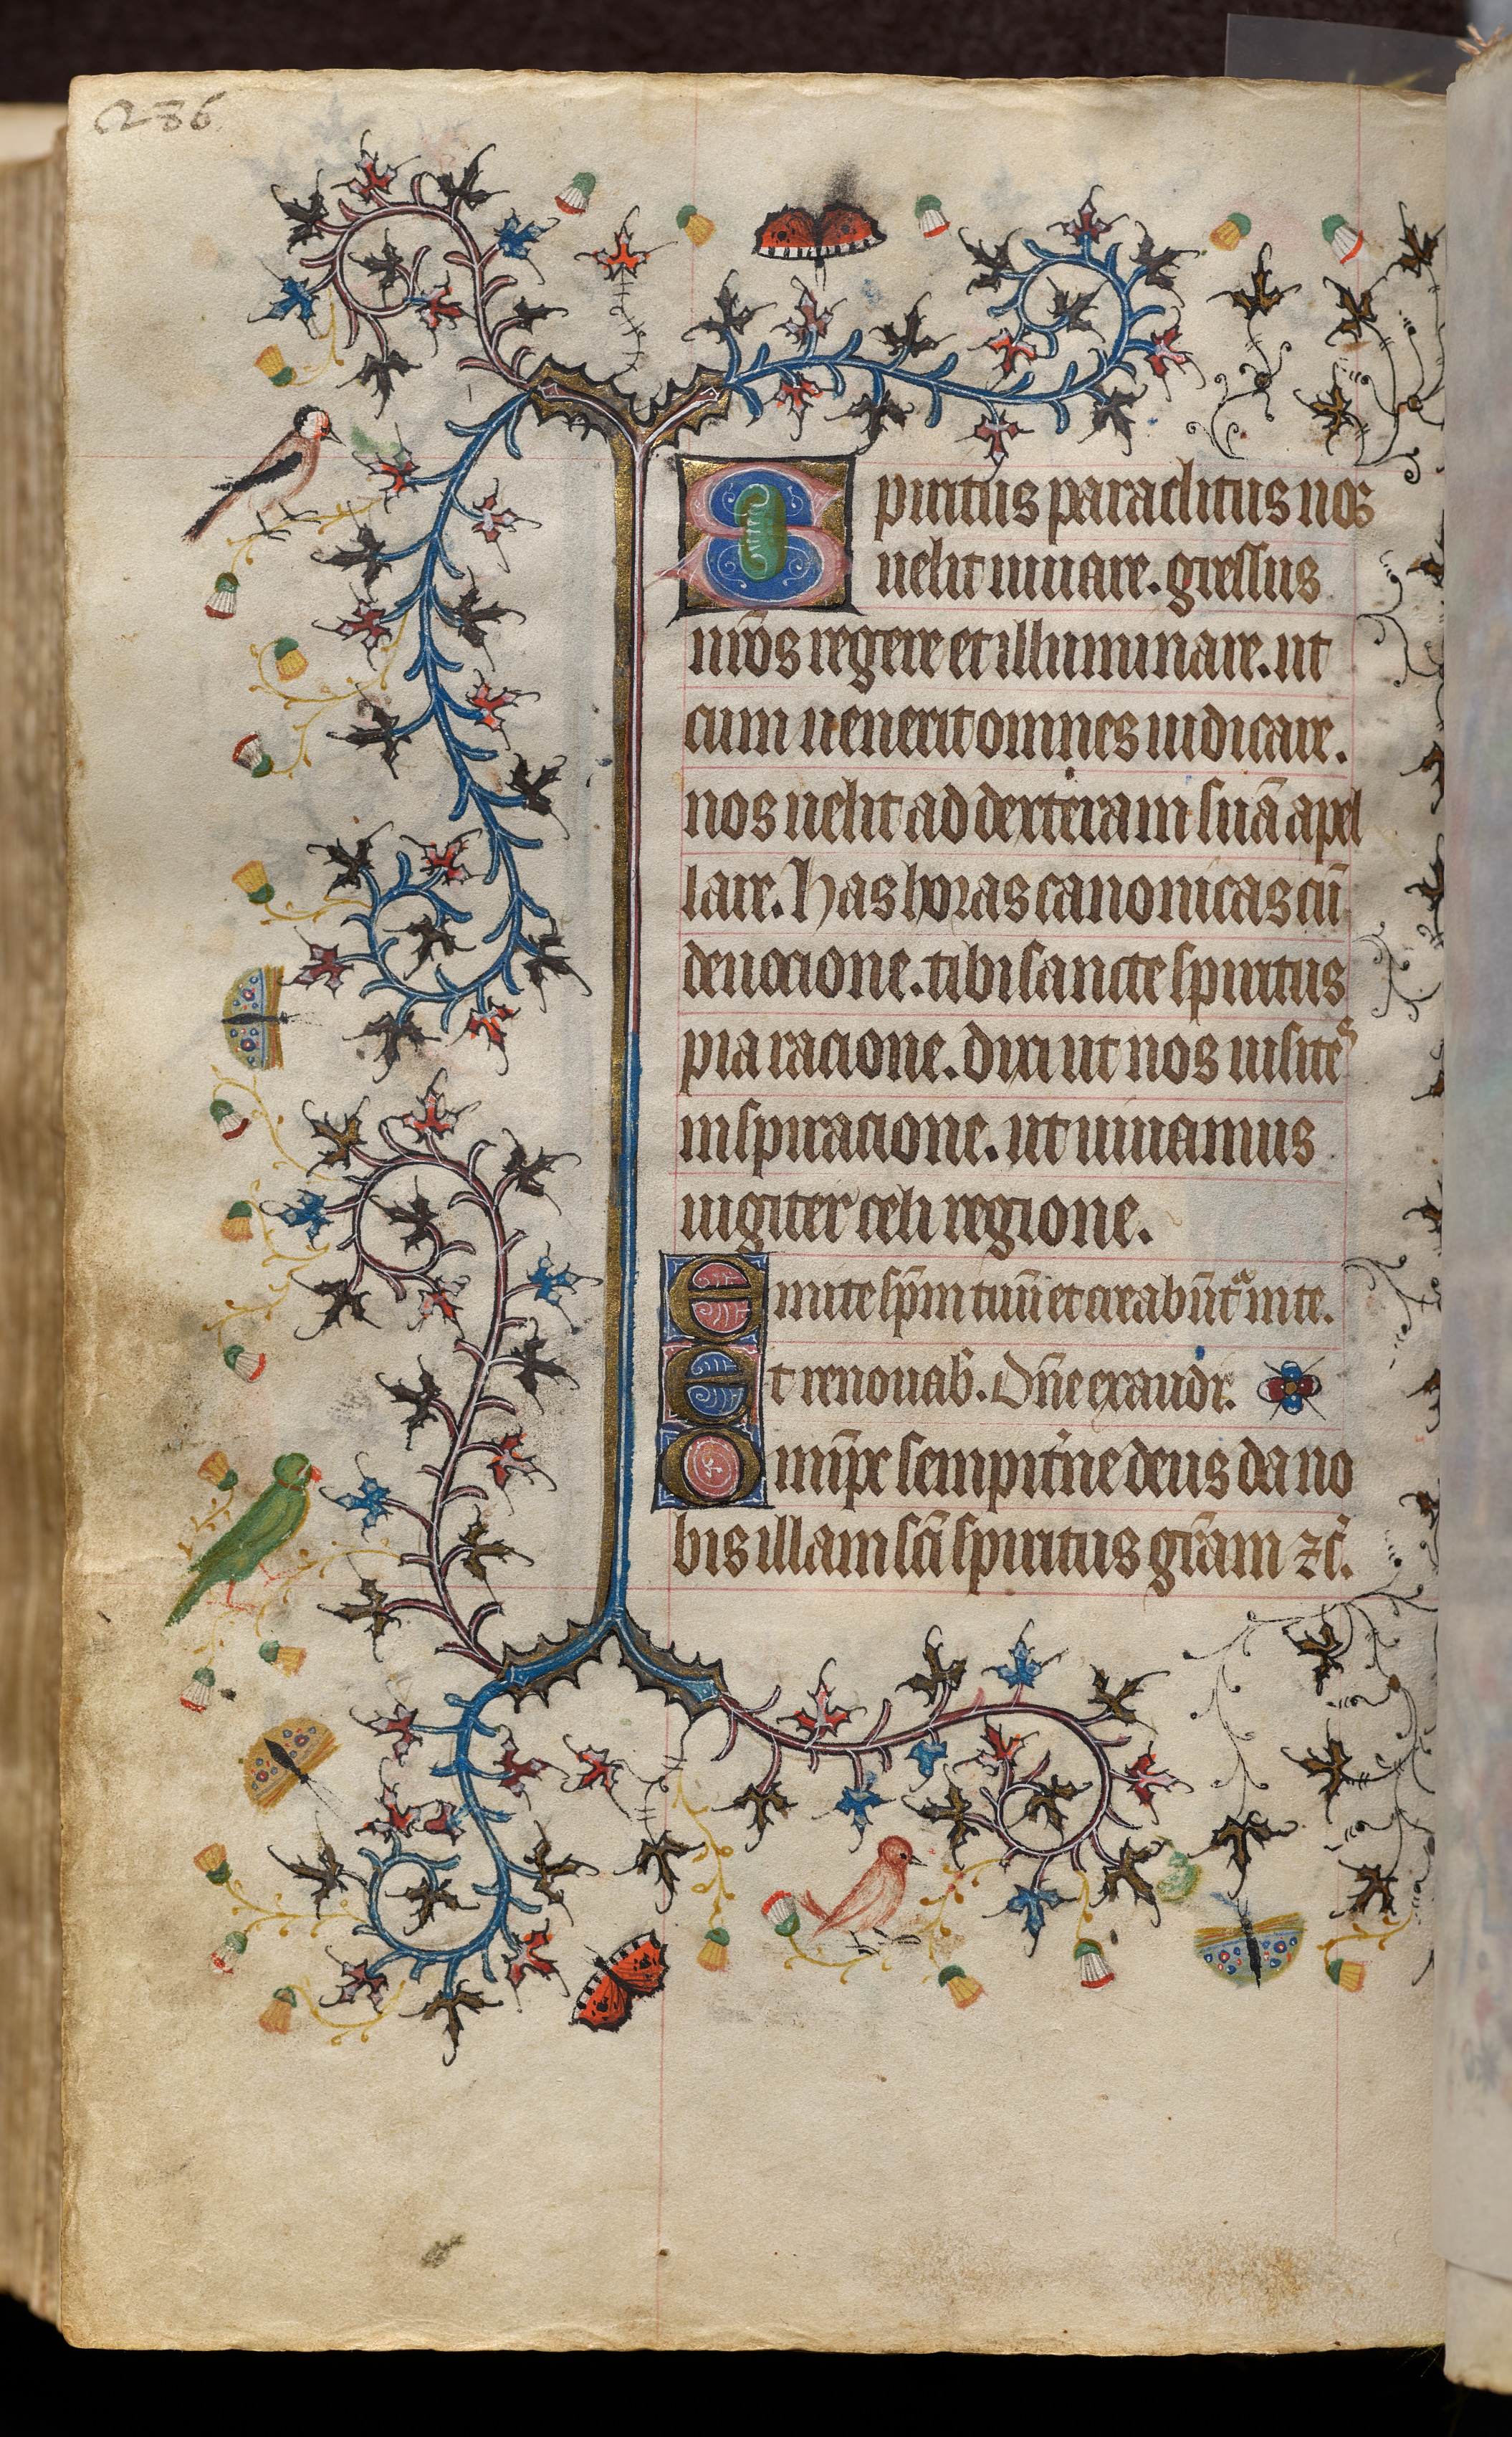 286
Spiritus paraclitus nos
uelit iuuare. gressus
nr̄os regere et illuminare. ut
cum uenerit omnes iudicare.
nos uelit ad dexteram suā apel
lare. Has horas canonicas cū
deuocione. tibi sancte spiritus
pia racione. dixi ut nos uisites
inspiracione. ut uiuamus
iugiter celi regione.
Emite sp̄m tuū et creabūt᷑ in te.
Et renouab̄. Dn̄e exaudi.
Omīp̄r sempit̾ne deus da no
bis illam sc̄i spiritus gr̄am ⁊c̄.